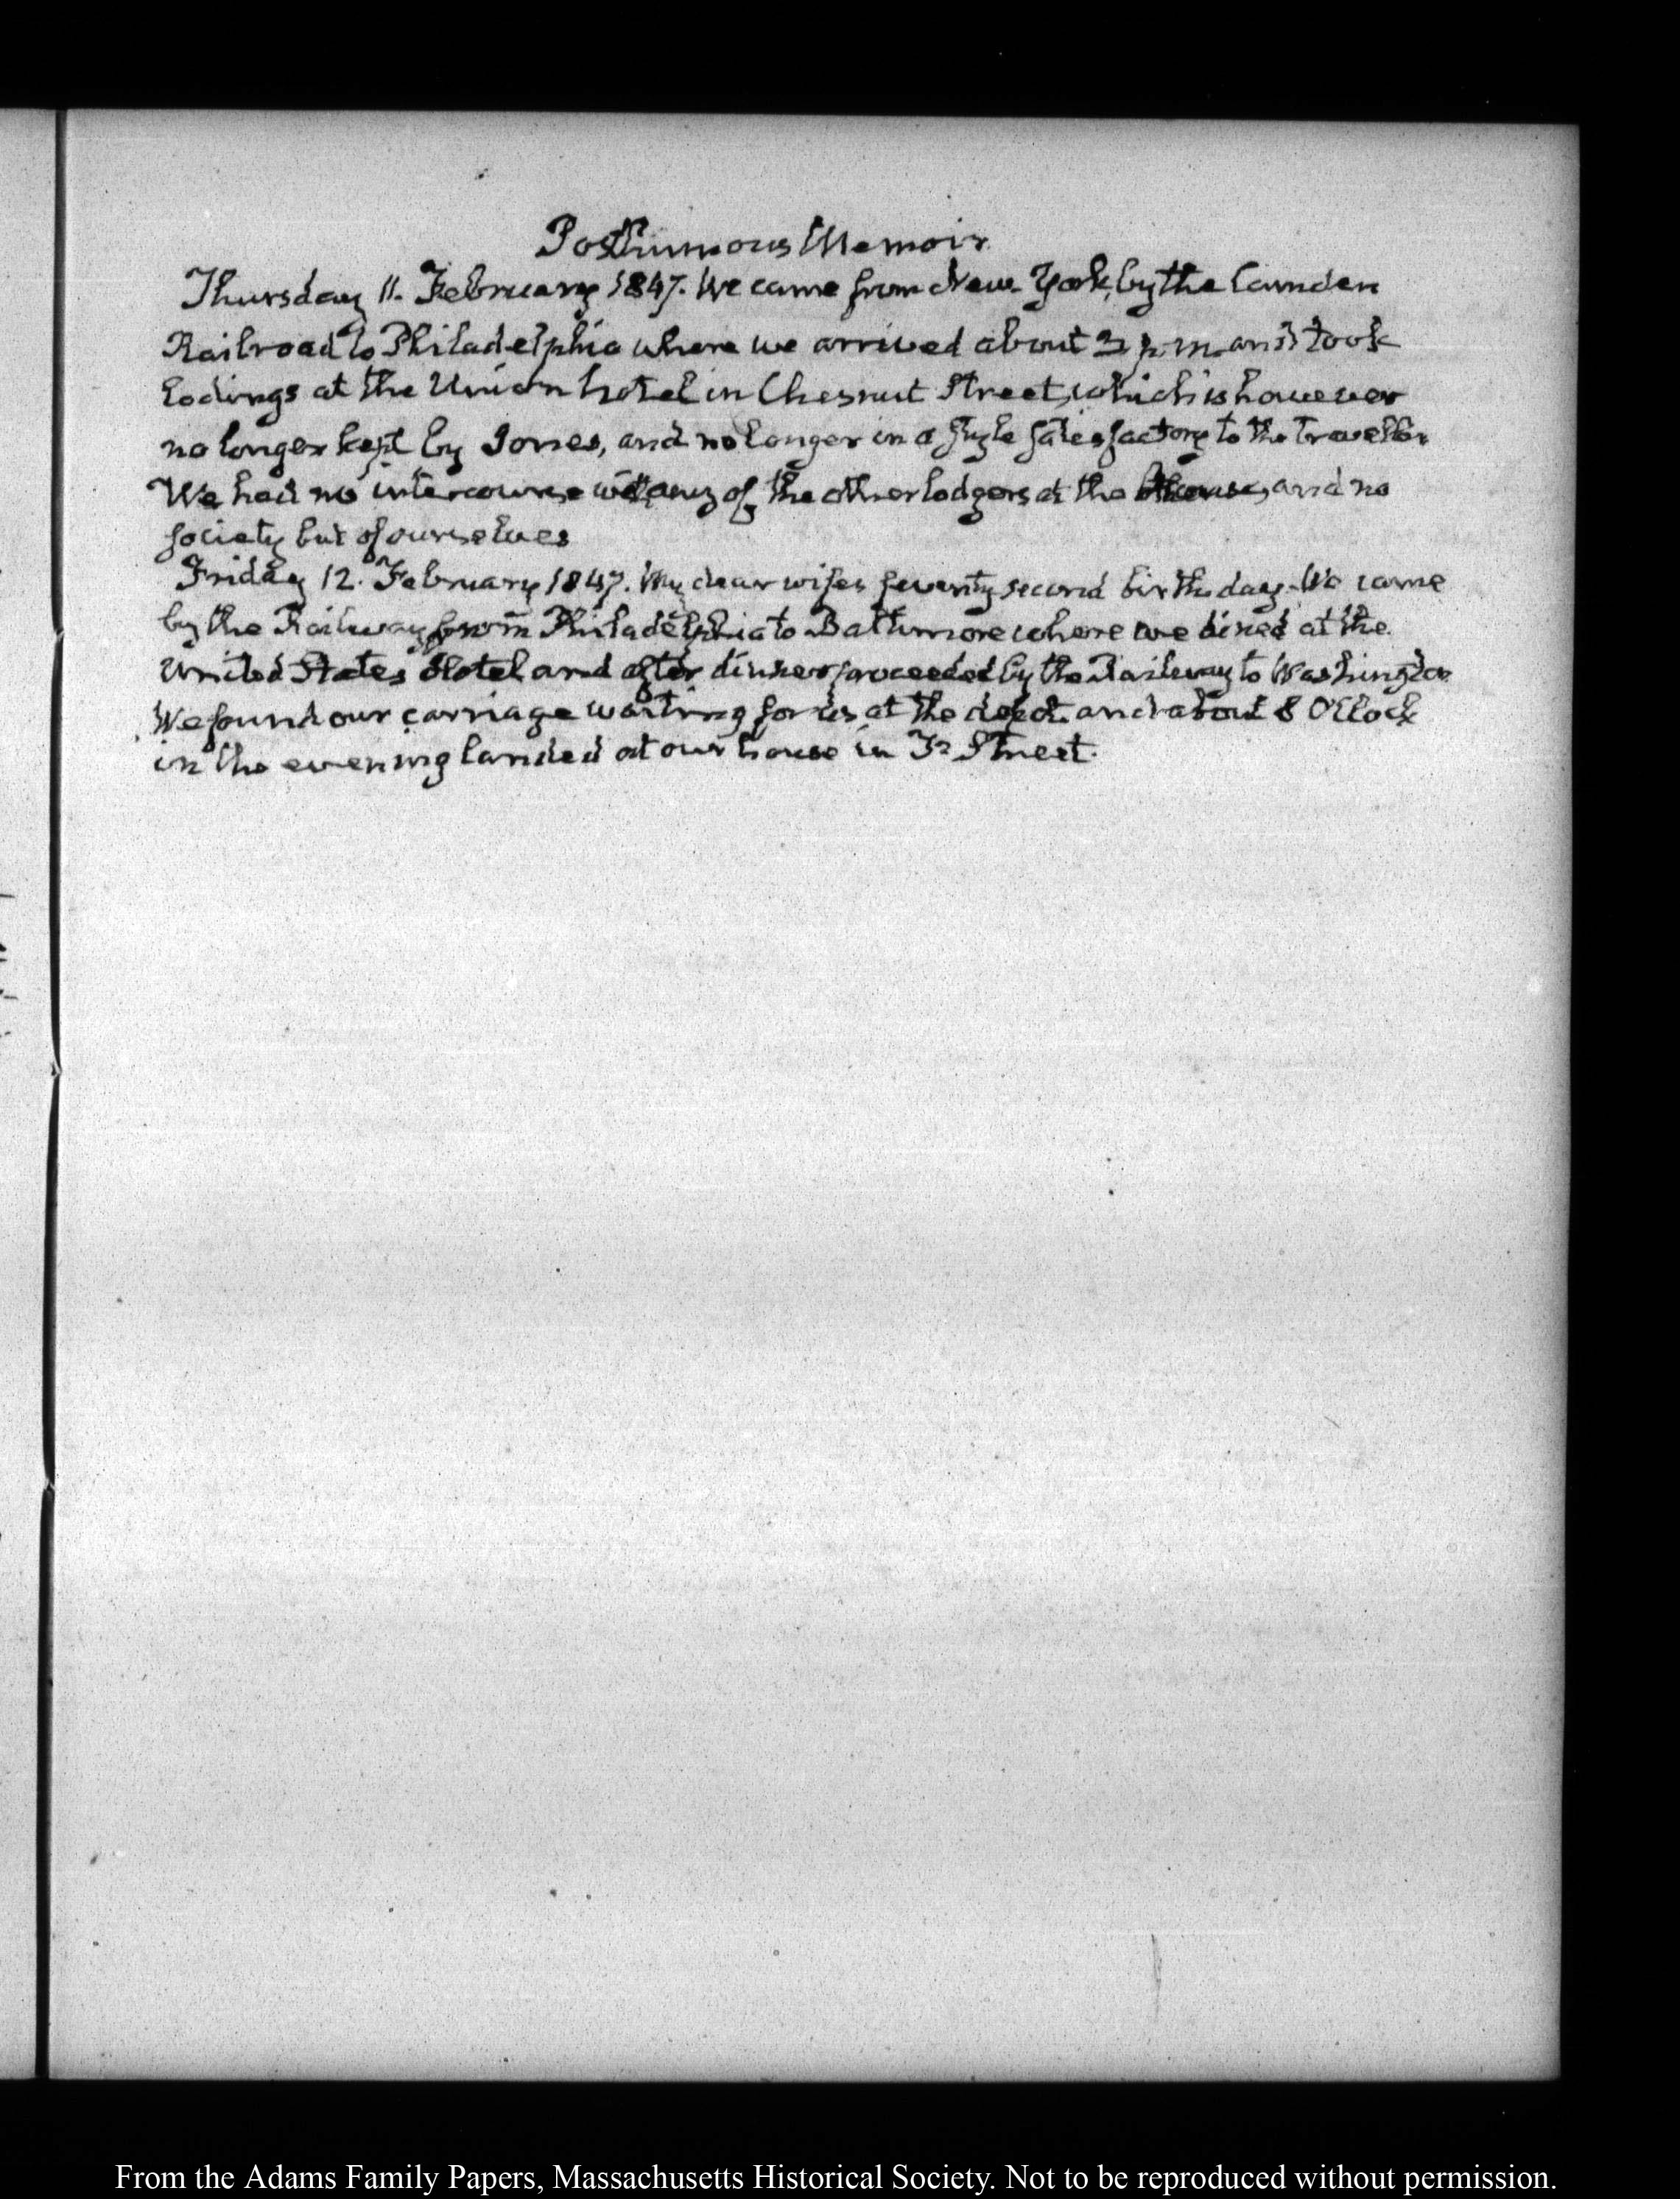 Posthumous Memoir
Thursday 11. February 1847. We came from New-York, by the Camden
Railroad to Philadelphia where we arrived about 2 p.m. and took
lodings at the Union hotel in Chesnut Street, which is however
no longer kept by Jones, and no longer in a style satesfactory to the traveller
We had no intercourse with any of the other lodgers at the house, and no
society but of ourselves
Friday 12. February 1847. My dear wifes seventy second birth day. We came
by the Railway from Philadelphia to Baltimore where we dined at the
United States Hotel and after dinner proceeded by the Railway to Washington
We found our carriage waiting for us at the depot and about 8 O'Clock
in the evening landed at our house in F. Street.
From the Adams Family Papers, Massachusetts Historical Society. Not to be reproduced without permission.